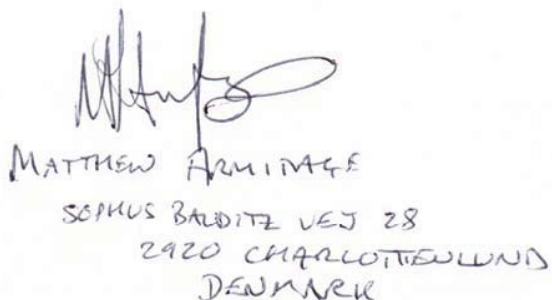 MATTHEW ARMITAGE
SOPHUS BAUDITZ VEJ 28
2920 CHARLOTTENLUND
DENMARK